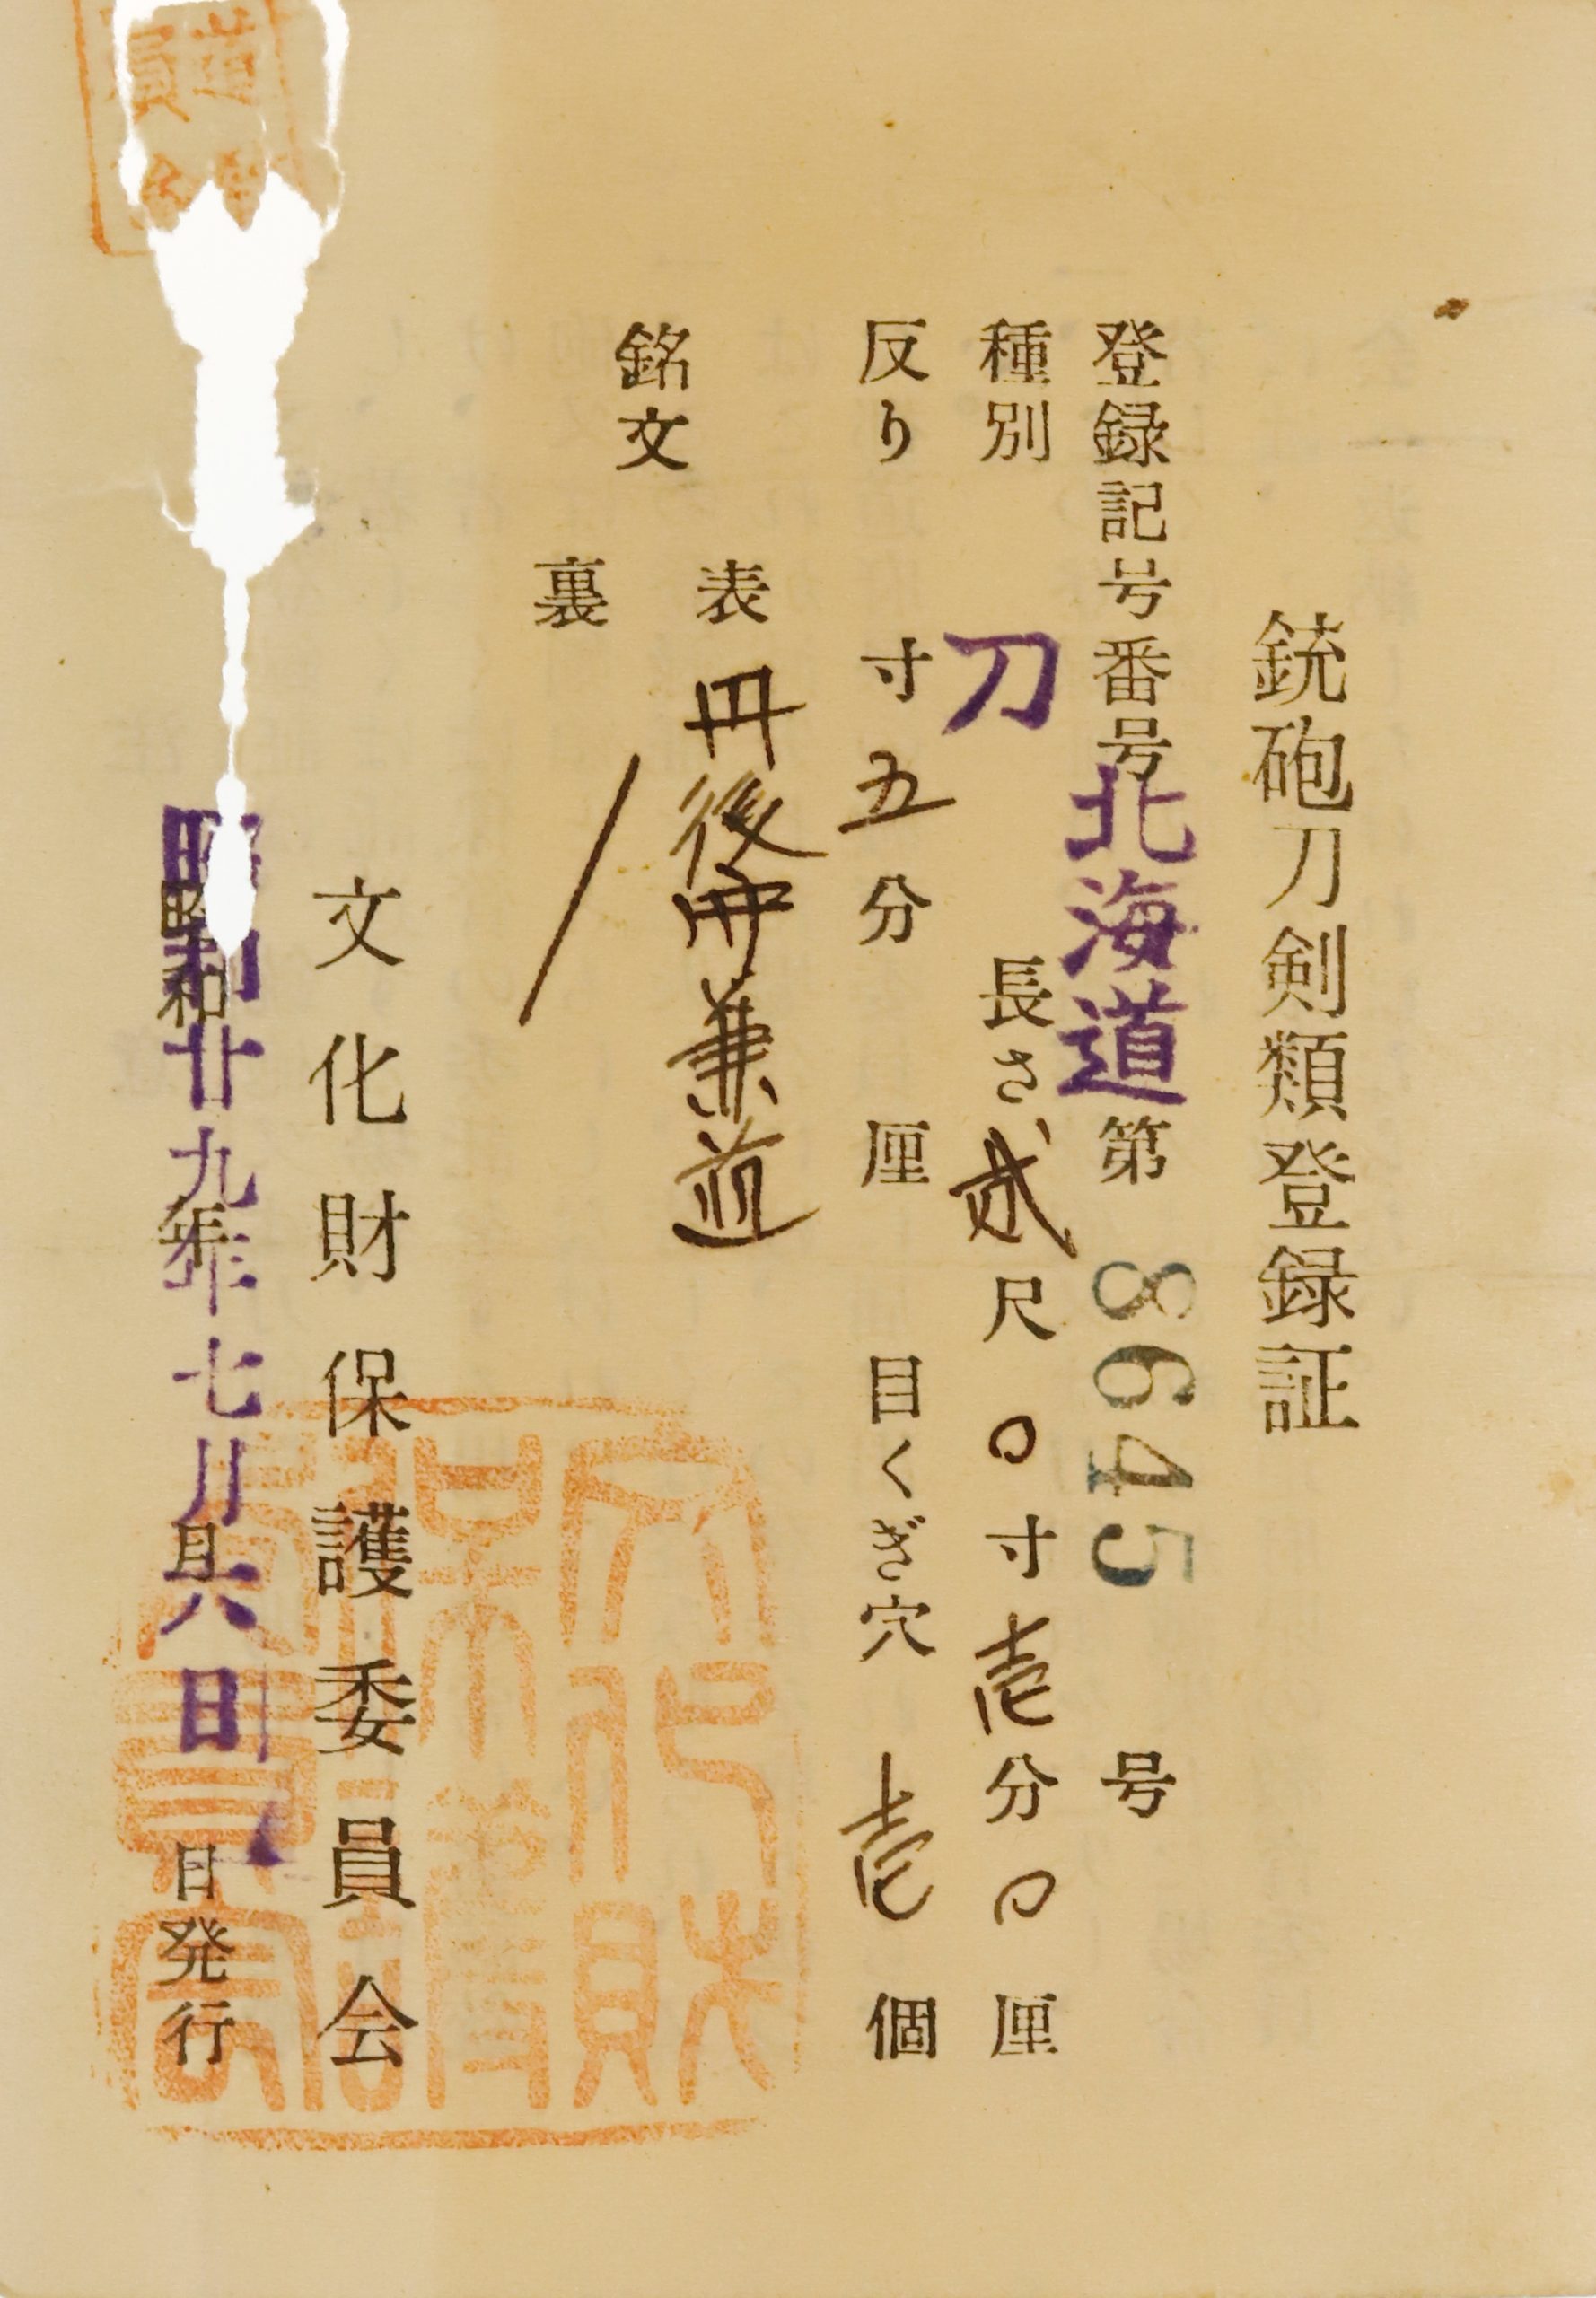 銃砲刀剣類登録証
登録記号番号北海道第 8645 号
種別 刀 長さ弐尺〇寸壱分〇厘
反り 寸五分 厘 目くぎ穴 壱 個
銘文
表 丹後守兼道
裏
文化財保護委員会
昭和廿九年七月六日
昭和 年 月 日発行